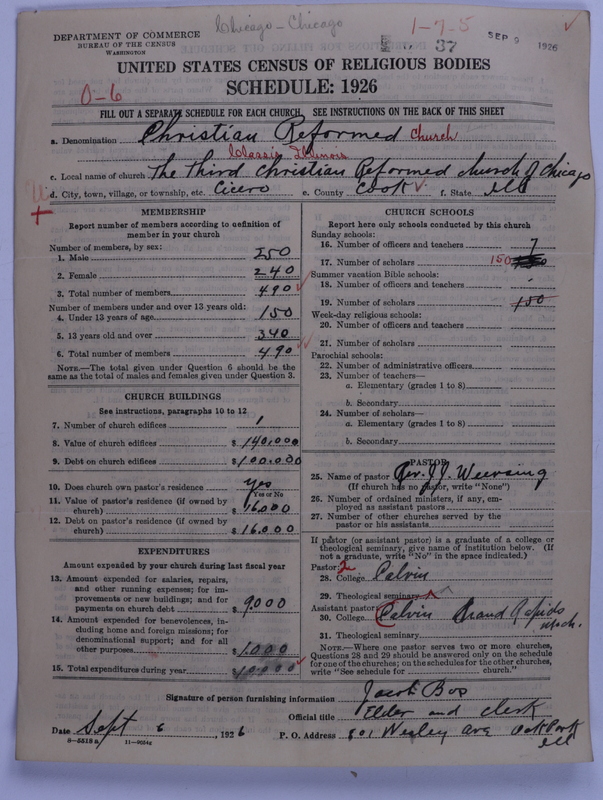 Chicago - Chicago
1-7-5
37
SEP 9 1926
DEPARTMENT OF COMMERCE
BUREAU OF THE CENSUS
WASHINGTON
UNITED STATES CENSUS OF RELIGIOUS BODIES
SCHEDULE: 1926
0-6
FILL OUT A SEPARATE SCHEDULE FOR EACH CHURCH. SEE INSTRUCTIONS ON THE BACK OF THIS SHEET
a. Denomination Christian Reformed Church
Classis Illinois
c. Local name of church The Third Christian Reformed church of Chicago
d. City, town, village, or township, etc. Cicero e. County Cook f. State Ill
MEMBERSHIP
Report number of members according to definition of
member in your church
Number of members, by sex:
1. Male 250
2. Female 240
3. Total number of members 490
Number of members under and over 13 years old:
4. Under 13 years of age 150
5. 13 years old and over 340
6. Total number of members 490
NOTE.—The total given under Question 6 should be the
same as the total of males and females given under Question 3.
CHURCH BUILDINGS
See instructions, paragraphs 10 to 12
7. Number of church edifices 1
8. Value of church edifices $ 140,000
9. Debt on church edifices $ 100,000
10. Does church own pastor's residence yes
Yes or No
11. Value of pastor's residence (if owned by
church) $ 16000
12. Debt on pastor's residence (if owned by
church) $ 16.000
EXPENDITURES
Amount expended by your church during last fiscal year
13. Amount expended for salaries, repairs,
and other running expenses; for im-
provements or new buildings; and for
payments on church debt $ 9000
14. Amount expended for benevolences, in-
cluding home and foreign missions; for
denominational support; and for all
other purposes $ 1000
15. Total expenditures during year $ 10000
CHURCH SCHOOLS
Report here only schools conducted by this church
Sunday schools:
16. Number of officers and teachers 7
17. Number of scholars 150
Summer vacation Bible schools:
18. Number of officers and teachers
19. Number of scholars 150
Week-day religious schools:
20. Number of officers and teachers
21. Number of scholars
Parochial schools:
22. Number of administrative officers
23. Number of teachers—
a. Elementary (grades 1 to 8)
b. Secondary
24. Number of scholars—
a. Elementary (grades 1 to 8)
b. Secondary
PASTOR
25. Name of pastor Rev. J.J. Weersing
(If church has no pastor, write "None")
26. Number of ordained ministers, if any, em-
ployed as assistant pastors
27. Number of other churches served by the
pastor or his assistants
If pastor (or assistant pastor) is a graduate of a college or
theological seminary, give name of institution below. (If
not a graduate, write "No" in the space indicated.)
Pastor:
28. College Calvin
29. Theological seminary
Assistant pastor:
30. College Calvin Grand Rapids
Mich.
31. Theological seminary
NOTE.—Where one pastor serves two or more churches,
Questions 28 and 29 should be answered only on the schedule
for one of the churches; on the schedules for the other churches,
write "See schedule for church."
Signature of person furnishing information Jacob Bos
Official title Elder and Clerk
Date Sept 6, 1926 P. O. Address 801 Wesley Ave Oak Park
Ill
8—5518 a 11—9034g